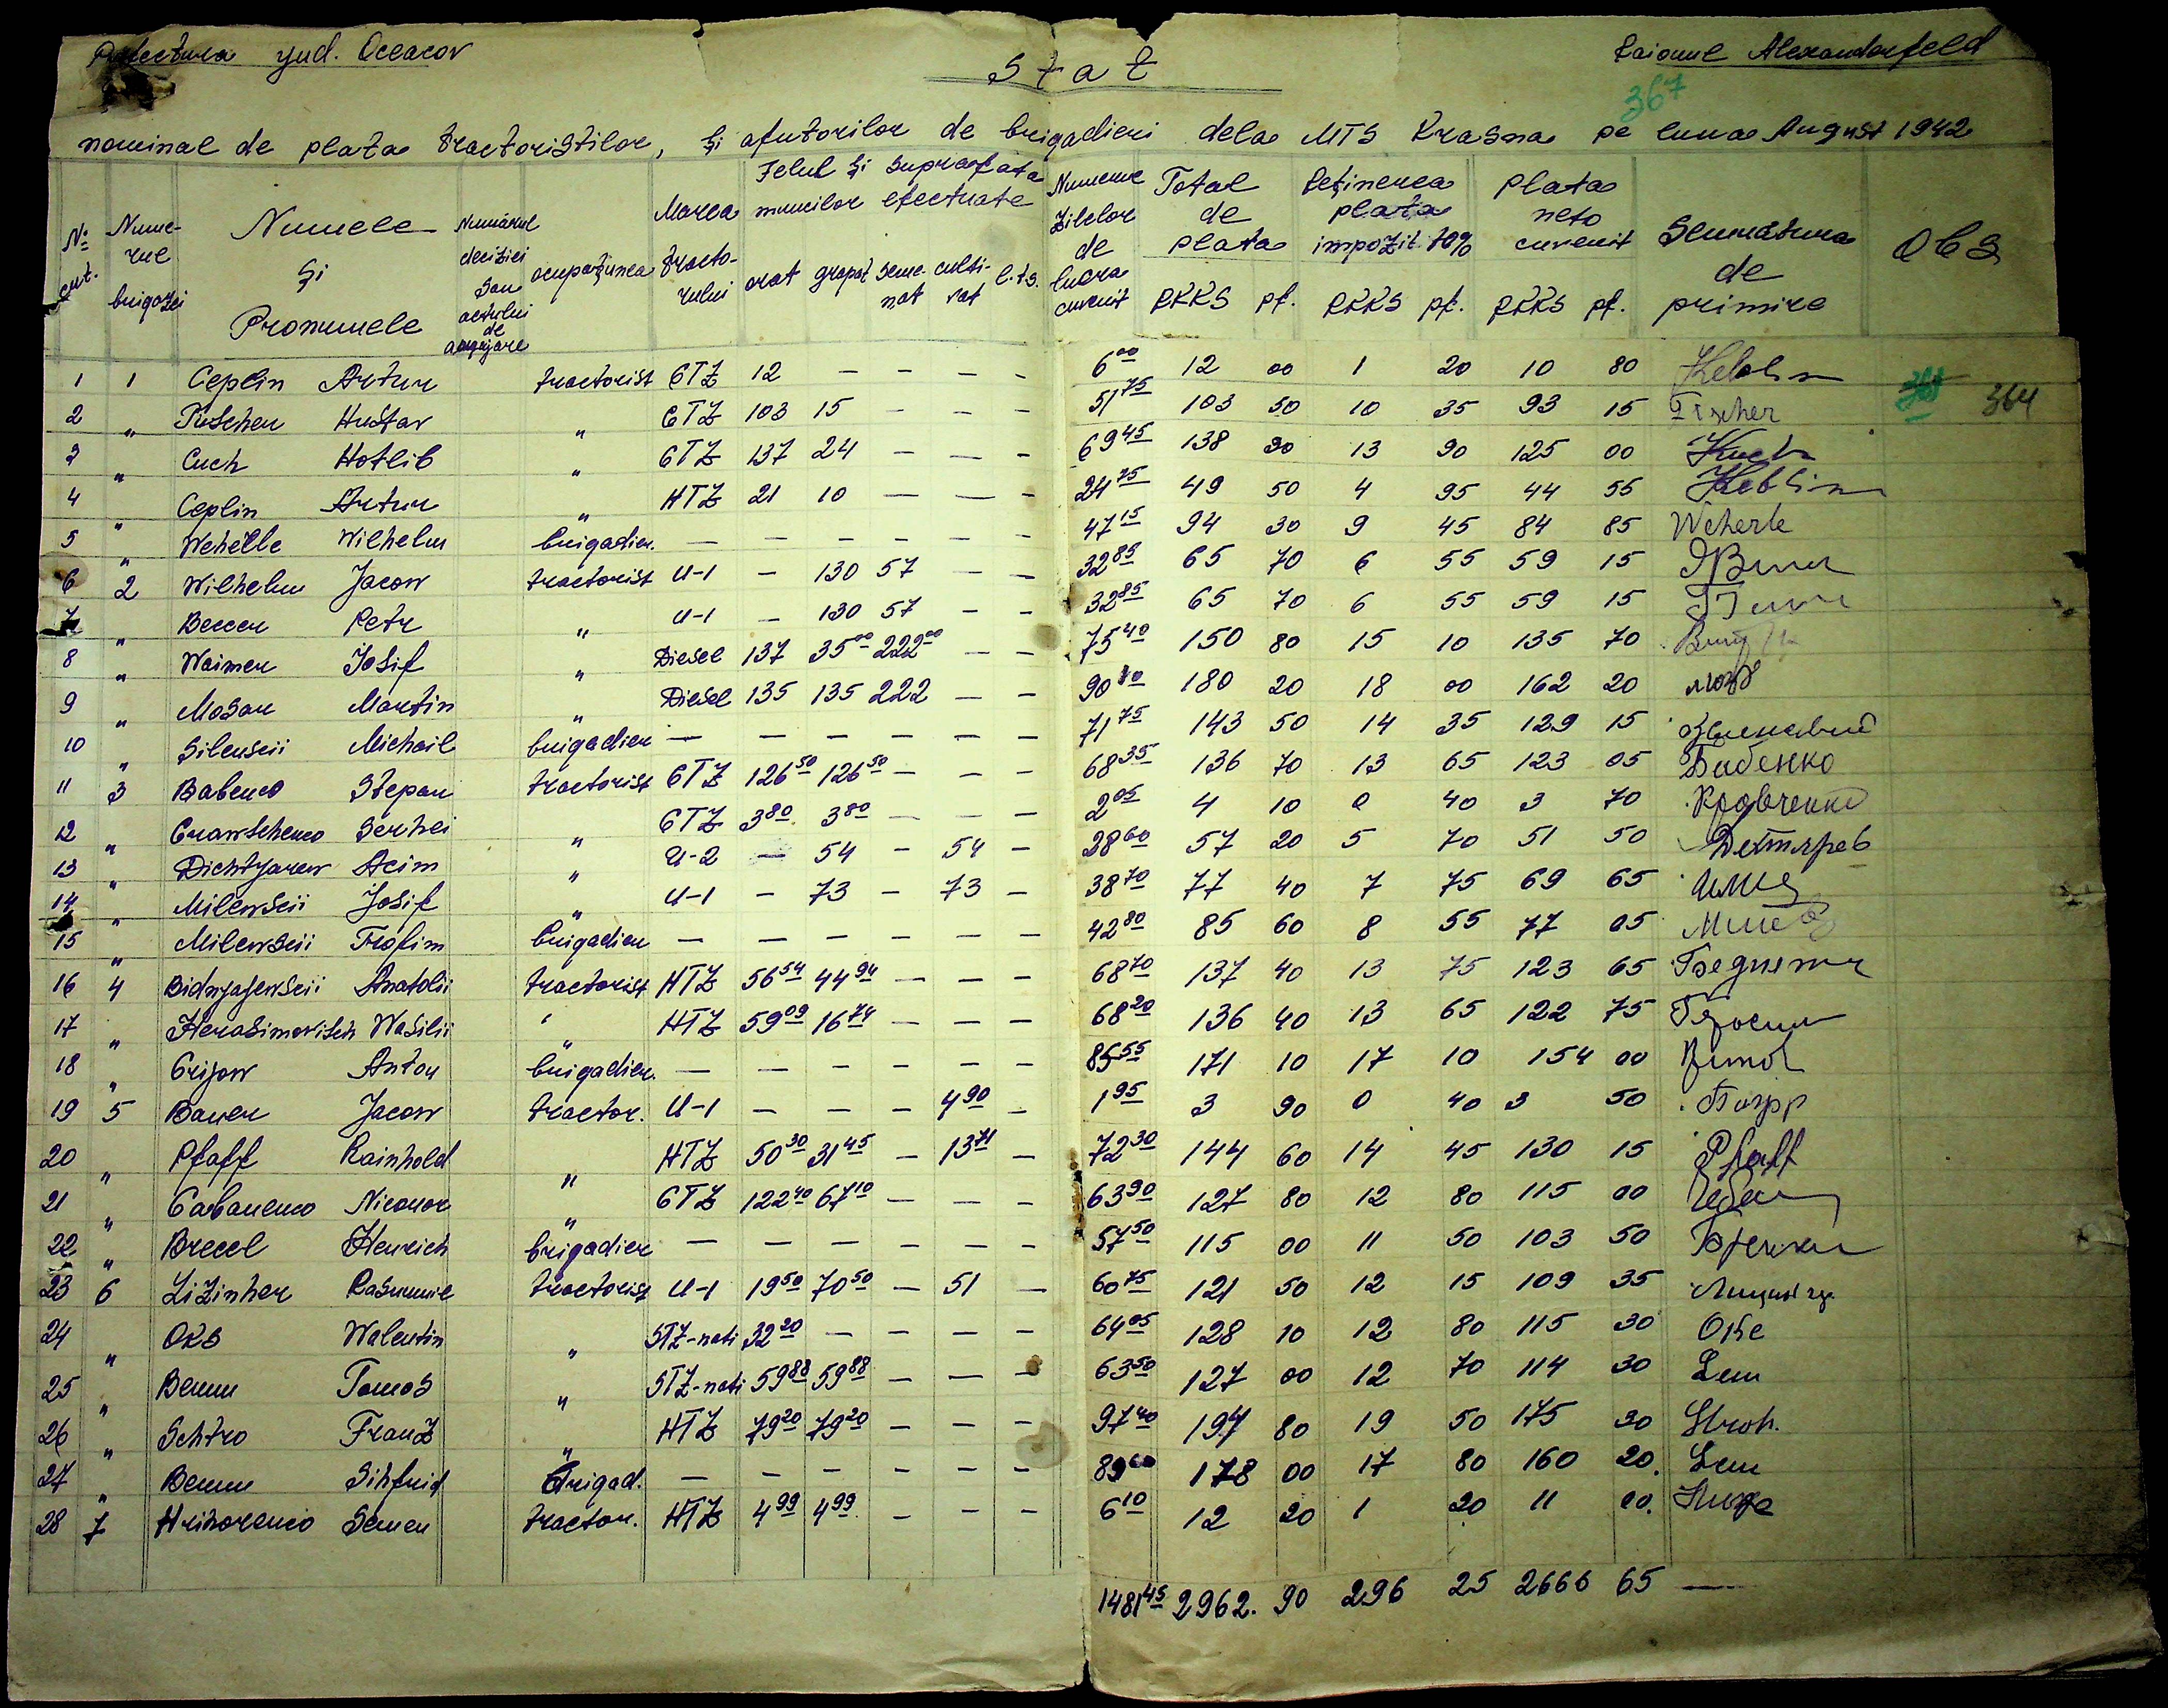 Prefectura jud. Oceacov
Raionul Alexanderfeld
Stat
367
nominal de plata tractoriștilor, și ajutorilor de brigadieri dela MTS Krasna pe luna August 1942
№ crt. Numerul brigăzei Numele și Pronumele Numărul deciziei sau actului de angajare ocupațiunea Marca tractorului Felul și suprafata muncilor efectuate arat grapat semenat cultivat l.ts. Numerul zilelor de lucru cuvenit Total de plata RKKS pf. Reținerea plata impozit 10% RKKS pf. plata neto cuvenit RKKS pf. Semnătura de primire Obs
1 1 Ceplin Artur tractorist CTZ 12 — — — — 6⁰⁰ 12 00 1 20 10 80
364
2 " Fischer Hustav " CTZ 103 15 — — — 51⁷⁵ 103 50 10 35 93 15 Fischer
3 " Cuch Hotlib " CTZ 137 24 — — — 69⁴⁵ 138 90 13 90 125 00 Kuch
4 " Ceplin Artur " HTZ 21 10 — — — 24⁷⁵ 49 50 4 95 44 55
5 " Wehelle Wilhelm brigadier. — — — — — — 47¹⁵ 94 30 9 45 84 85 Weherle
6 2 Wilhelm Jacow tractorist U-1 — 130 57 — — 32⁸⁵ 65 70 6 55 59 15
7 " Beccer Petr " U-1 — 130 57 — — 32⁸⁵ 65 70 6 55 59 15
8 " Waimer Josif " Diesel 137 35⁰⁰ 222⁰⁰ — — 75⁴⁰ 150 80 15 10 135 70
9 " Mosar Martin " Diesel 135 135 222 — — 90¹⁰ 180 20 18 00 162 20
10 " Silenscii Michail brigadier — — — — — — 71⁷⁵ 143 50 14 35 129 15
11 3 Babenco Stepan tractorist CTZ 126⁵⁰ 126⁵⁰ — — — 68³⁵ 136 70 13 65 123 05 Бабенко
12 " Crawschenco Serhei " CTZ 3⁸⁰ 3⁸⁰ — — — 2⁰⁵ 4 10 0 40 3 70 Кравченко
13 " Dichtyarew Acim " U-2 — 54 — 54 — 28⁶⁰ 57 20 5 70 51 50 Дехтярев
14 " Milewscii Josif " U-1 — 73 — 73 — 38⁷⁰ 77 40 7 75 69 65
15 " Milewscii Trofim brigadier — — — — — — 42⁸⁰ 85 60 8 55 77 05
16 4 Bidnyajewscii Anatolii tractorist HTZ 56⁵⁴ 44⁹⁴ — — — 68⁷⁰ 137 40 13 75 123 65
17 " Herasimovitsch Wasilii " HTZ 59⁰⁹ 16⁷⁴ — — — 68²⁰ 136 40 13 65 122 75
18 " Crijow Anton brigadier. — — — — — — 85⁵⁵ 171 10 17 10 154 00
19 5 Bauer Jacow tractor. U-1 — — — 4⁹⁰ — 1⁹⁵ 3 90 0 40 3 50
20 " Pfaff Rainhold " HTZ 50³⁰ 31⁴⁵ — 13⁷¹ — 72³⁰ 144 60 14 45 130 15 Pfaff
21 " Cabanenco Nicanor " CTZ 122⁴⁰ 67¹⁰ — — — 63⁹⁰ 127 80 12 80 115 00
22 " Brecel Henrich brigadier — — — — — — 57⁵⁰ 115 00 11 50 103 50
23 6 Lizinher tractorist U-1 19⁵⁰ 70⁵⁰ — 51 — 60⁷⁵ 121 50 12 15 109 35
24 " Oks Walentin " STZ-nati 32²⁰ — — — — 64⁰⁵ 128 10 12 80 115 30
25 " Bemm Tomos " STZ-nati 59⁸⁸ 59⁸⁸ — — — 63⁵⁰ 127 00 12 70 114 30
26 " Schtro Franz " HTZ 79²⁰ 79²⁰ — — — 97⁴⁰ 194 80 19 50 175 30 Stroh.
27 " Bemm Sihfrid brigad. — — — — — — 89⁰⁰ 178 00 17 80 160 20.
28 7 Hrihorenco Semen tractor. HTZ 4⁹⁹ 4⁹⁹ — — — 6¹⁰ 12 20 1 20 11 00.
1481⁴⁵ 2962. 90 296 25 2666 65 —